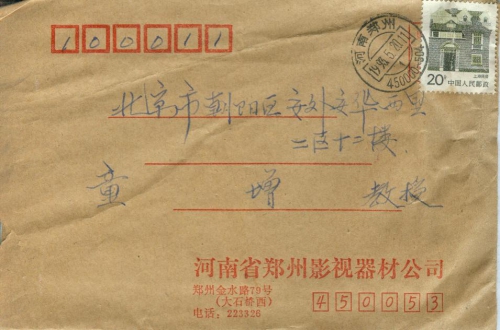 100011
河南郑州
1996.5.20.11
1
450000-504
20分
中国人民邮政
北京市朝阳区安外安华西里
二区十二楼
童 增 教授
河南省郑州影视器材公司
郑州金水路79号
(大石桥西)
电话：223326
450053